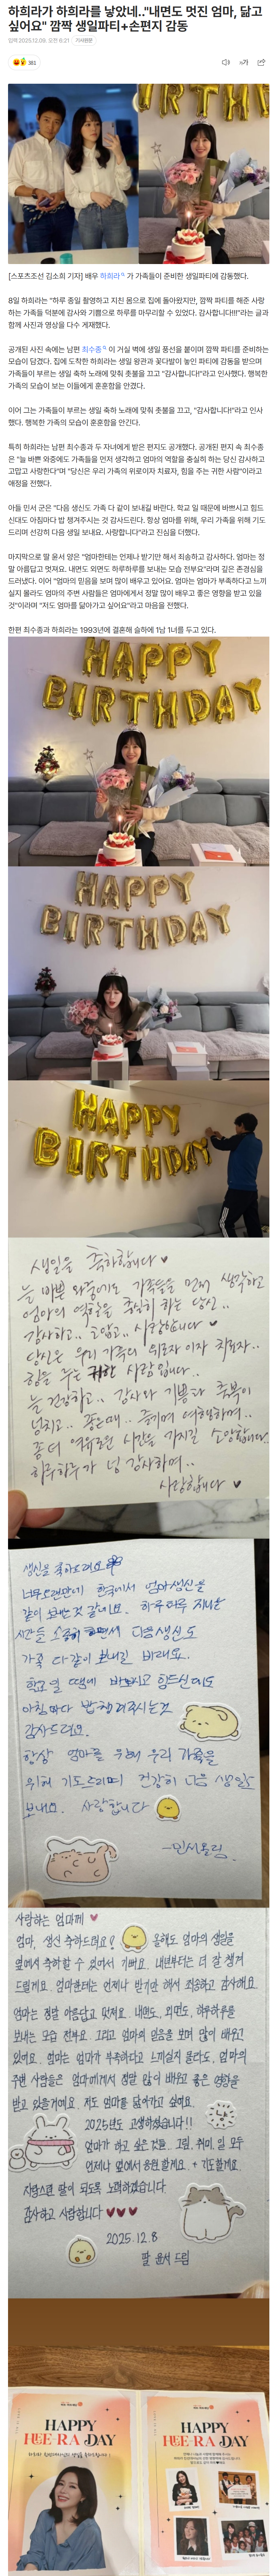 하희라가 하희라를 낳았네.."내면도 멋진 엄마, 닮고
싶어요" 깜짝 생일파티+손편지 감동
입력 2025.12.09. 오전 6:21
기사원문
381
가가
[스포츠조선 김소희 기자] 배우 하희라가 가족들이 준비한 생일파티에 감동했다.
8일 하희라는 "하루 종일 촬영하고 지친 몸으로 집에 돌아왔지만, 깜짝 파티를 해준 사랑
하는 가족들 덕분에 감사와 기쁨으로 하루를 마무리할 수 있었다. 감사합니다!!!"라는 글과
함께 사진과 영상을 다수 게재했다.
공개된 사진 속에는 남편 최수종이 거실 벽에 생일 풍선을 붙이며 깜짝 파티를 준비하는
모습이 담겼다. 집에 도착한 하희라는 생일 왕관과 꽃다발이 놓인 파티에 감동을 받으며
가족들이 부르는 생일 축하 노래에 맞춰 촛불을 끄고 "감사합니다!"라고 인사했다. 행복한
가족의 모습이 보는 이들에게 훈훈함을 안겼다.
이어 그는 가족들이 부르는 생일 축하 노래에 맞춰 촛불을 끄고, "감사합니다!"라고 인사
했다. 행복한 가족의 모습이 훈훈함을 안긴다.
특히 하희라는 남편 최수종과 두 자녀에게 받은 편지도 공개했다. 공개된 편지 속 최수종
은 "늘 바쁜 와중에도 가족들을 먼저 생각하고 엄마의 역할을 충실히 하는 당신 감사하고
고맙고 사랑한다"며 "당신은 우리 가족의 위로이자 치료자, 힘을 주는 귀한 사람"이라고
애정을 전했다.
아들 민서 군은 "다음 생신도 가족 다 같이 보내길 바란다. 학교 일 때문에 바쁘시고 힘드
신대도 아침마다 밥 챙겨주시는 것 감사드린다. 항상 엄마를 위해, 우리 가족을 위해 기도
드리며 건강히 다음 생일 보내요. 사랑합니다"라고 진심을 전했다.
마지막으로 딸 윤서 양은 "엄마한테는 언제나 받기만 해서 죄송하고 감사하다. 엄마는 정
말 아름답고 멋져요. 내면도 외면도 하루하루를 보내는 모습 전부요"라며 깊은 존경심을
드러냈다. 이어 "엄마의 믿음을 보며 많이 배우고 있어요. 엄마는 엄마가 부족하다고 느끼
실지 몰라도 엄마의 주변 사람들은 엄마에게서 정말 많이 배우고 좋은 영향을 받고 있을
것"이라며 "저도 엄마를 닮아가고 싶어요"라고 마음을 전했다.
한편 최수종과 하희라는 1993년에 결혼해 슬하에 1남 1녀를 두고 있다.
HAPPY
BIRTHDAY
HAPPY
BIRTHDAY
HAPPY
BIRTHDAY
생일을 축하합니다
늘 바쁜 와중에도 가족들을 먼저 생각하고
엄마의 역할을 충실히 하는 당신..
감사하고.. 고맙고.. 사랑합니다
당신은 우리 가족의 위로자 이자 치료자..
힘을 주는 귀한 사람입니다..
늘 건강하고.. 감사와 기쁨과 축복이
넘치고.. 즐기며 여행하며..
좀 더 여유로운 시간을 가지길 소망합니다.
하루하루가 넘 감사하며..
사랑합니다
생신을 축하드려요
너무 오랜만에 한국에서 엄마 생신을
같이 보내는 것 같네요. 하루하루 지나는
시간들 소중히 다음 생신도
가족 다 같이 보내길 바래요..
학교 일 땜에 바쁘시고 힘드신데도
아침마다 밥 챙겨주시는것
감사드려요.
항상 엄마를 위해 우리 가족을
위해 기도드리며 건강히 다음 생일
보내요. 사랑합니다
-민서올림.
사랑하는 엄마께
엄마, 생신 축하드려요! 올해도 엄마의 생일을
옆에서 축하할 수 있어서 기뻐요. 내년부터는 더 잘 챙겨
드릴게요. 엄마한테는 언제나 받기만 해서 죄송하고 감사해요.
엄마는 정말 아름답고 멋져요. 내면도, 외면도, 하루하루를
보내는 모습 전부요. 그리고 엄마의 믿음을 보며 많이 배우고
있어요. 엄마는 엄마가 부족하다고 느끼실지 몰라도, 엄마의
주변 사람들은 엄마에게서 정말 많이 배우고 좋은 영향을
받고 있을거예요. 저도 엄마를 닮아가고 싶어요.
2025년도 고생하셨습니다!!
엄마가 하고 싶은 것들.. 그림, 취미, 일 모두
언제나 옆에서 응원할게요. + 기도할게요.
자랑스런 딸이 되도록 노력하겠습니다
감사하고 사랑합니다
2025.12.8
딸 윤서 드림
HAPPY
HEE-RA DAY
HAPPY
HEE-RA DAY